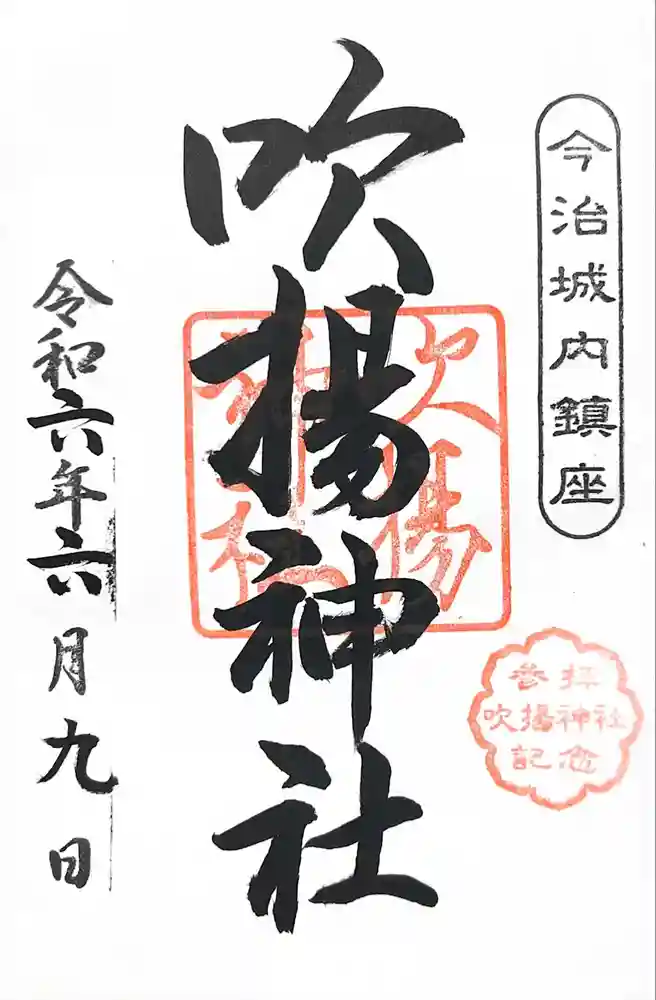 今治城内鎮座
参拝
吹揚神社
記念
吹揚神社
吹揚
神社
令和六年六月九日